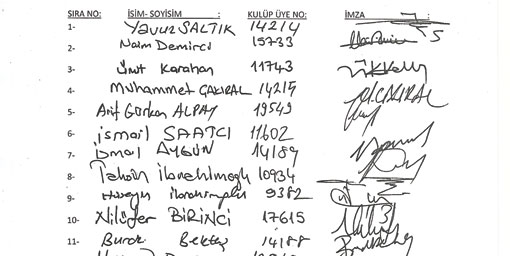 SIRA NO: İSİM- SOYİSİM : KULÜP ÜYE NO: İMZA :
1- Yavuz SALTIK 14214
2- Naim Demirci 15733
3- Ümit Karahan 11743
4- Muhammet ÇAKIRAL 14215
5- Arif Gürkan ALPAY 19549
6- İsmail SAATCI 11602
7- İsmail AYGÜN 14189
8- 10934
9- Hüseyin 9382
10- Nilüfer BİRİNCİ 17615
11- Burak Bektaş 14188